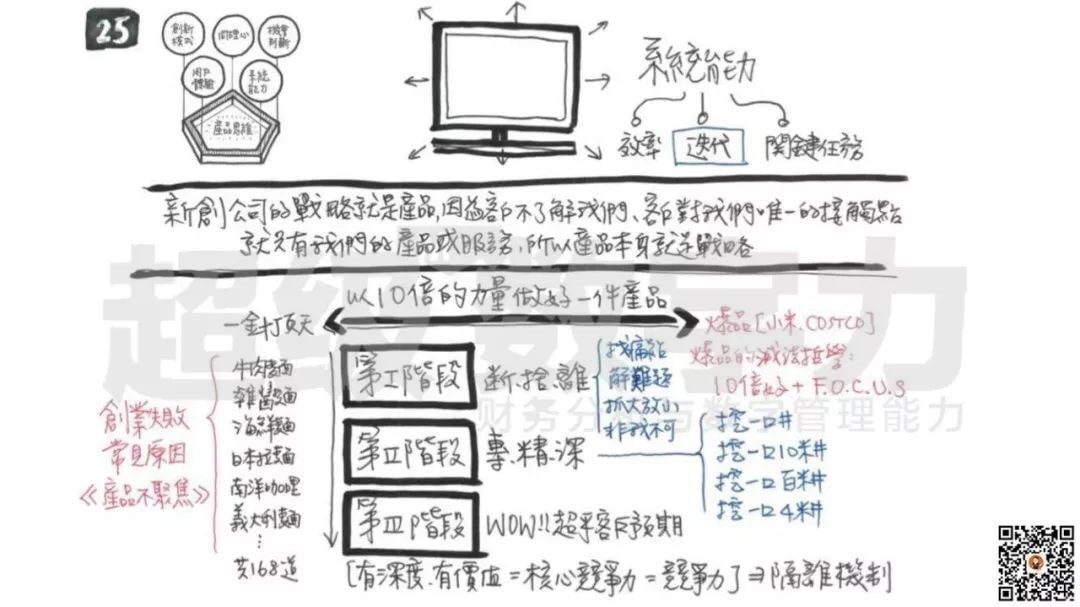 25
創新
模式
同理心
機會
判斷
用戶
體驗
系統
能力
產品思維
系統能力
效率
迭代
關鍵任務
新創公司的戰略就是產品,因為客戶不了解我們、客戶對我們唯一的接觸點
就只有我們的產品或服務,所以產品本身就是戰略
超级数字力
财务分析与数字管理能力
以10倍的力量做好一件產品
一針頂天
爆品[小米.COSTCO]
爆品的減法哲學:
10倍好+F.O.C.U.S
第I階段
斷.捨.離
找痛點
解難題
抓大放小
非我不可
第II階段
專.精.深
挖一口井
挖一口10米井
挖一口百米井
挖一口4米井
第III階段
WOW!!超乎客戶預期
[有深度.有價值=核心競爭力=競爭力]⇒隔離機制
創業失敗
常見原因
《產品不聚焦》
牛肉麵
炸醬麵
海鮮麵
日本拉麵
南洋咖哩
義大利麵
⋮
共168道